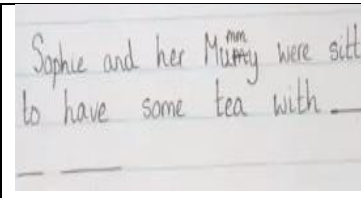 Sophie and her Mummy were sitt
to have some tea with ___
___ ___